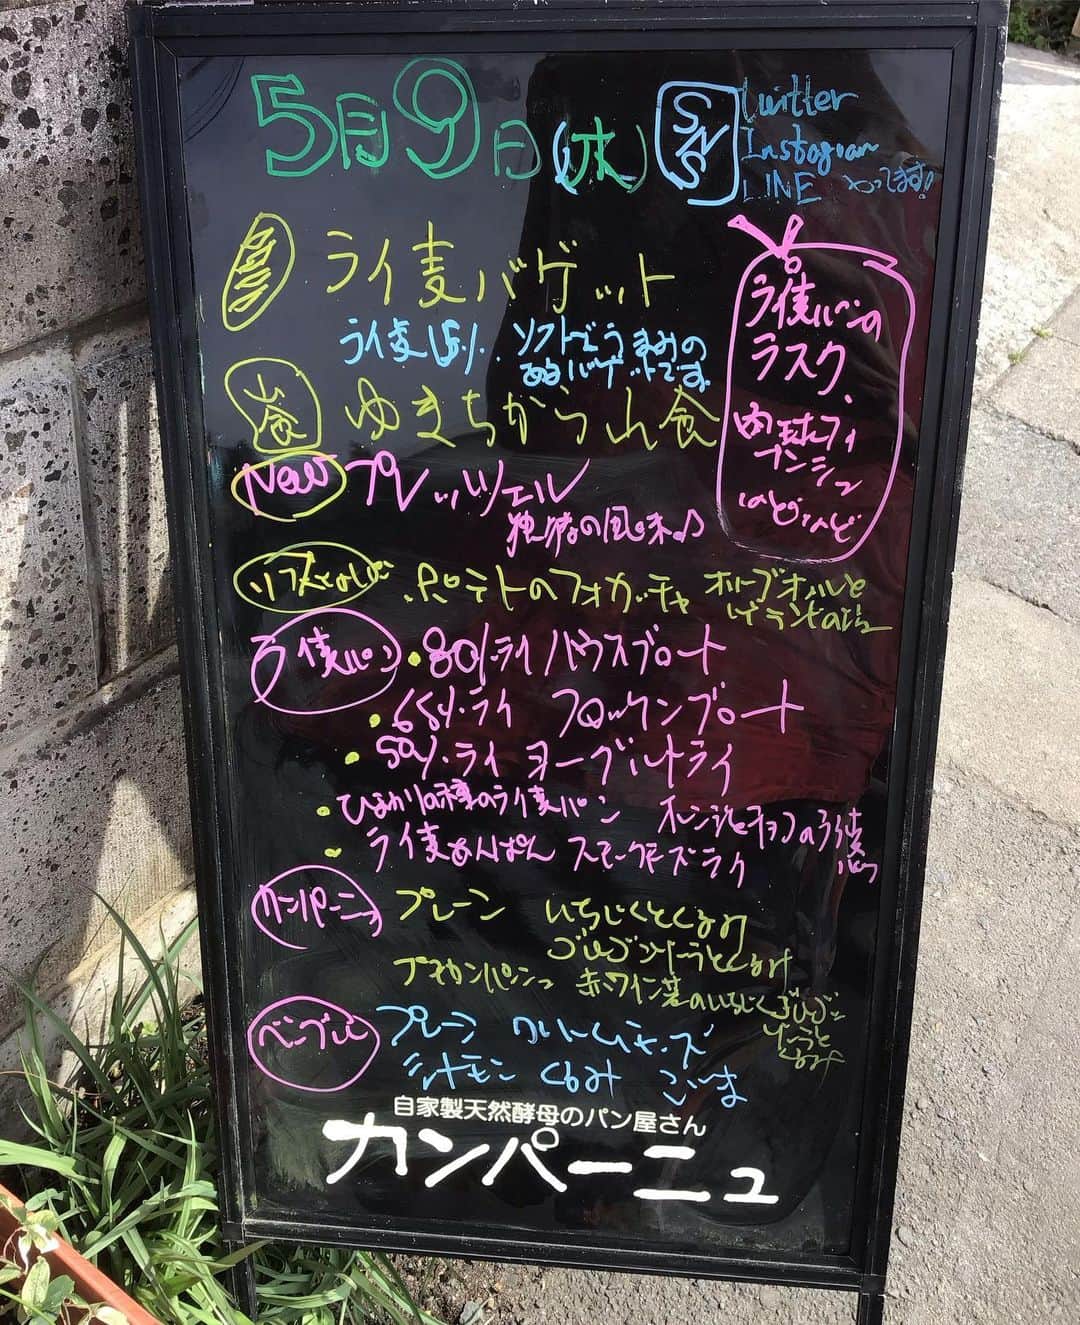 5月9日(水)
SNS
twitter
Instagram
LINE やってます!
ライ麦バゲット
ライ麦15%. ソフトでうまみの
あるバゲットです
山食
ゆめちから山食
New プレッツェル
独特の風味♪
ライ麦パンの
ラスク、
などなど
ポテトのフォカッチャ オリーブオイルと
ライ麦パン
・80%ライ ハウスブロート
・66%ライ フロッケンブロート
・50%ライ ヨーグルトライ
・ひまわりの種のライ麦パン オレンジとチョコのライ麦
・ライ麦あんぱん スモークチーズライ
カンパーニュ
プレーン いちじくとくるみ
ゴルゴンゾーラとくるみ
プチカンパーニュ 赤ワイン煮のいちじく
くるみ
ベーグル
プレーン クリームチーズ
シナモン くるみ ごま
自家製天然酵母のパン屋さん
カンパーニュ